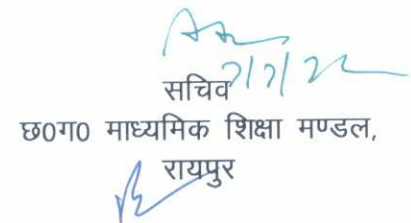 7/7/22
सचिव
छ0ग0 माध्यमिक शिक्षा मण्डल,
रायपुर